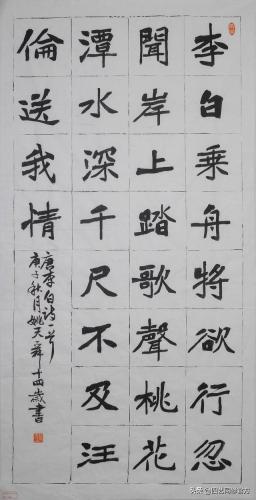 李白乘舟將欲行忽
聞岸上踏歌聲桃花
潭水深千尺不及汪
倫送我情
唐李白詩一首
庚子秋月姚天舜十四歲書
头条 @四艺同修官方